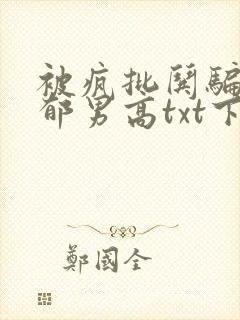 被疯批闺骗
郁男高txt下
鄭國全